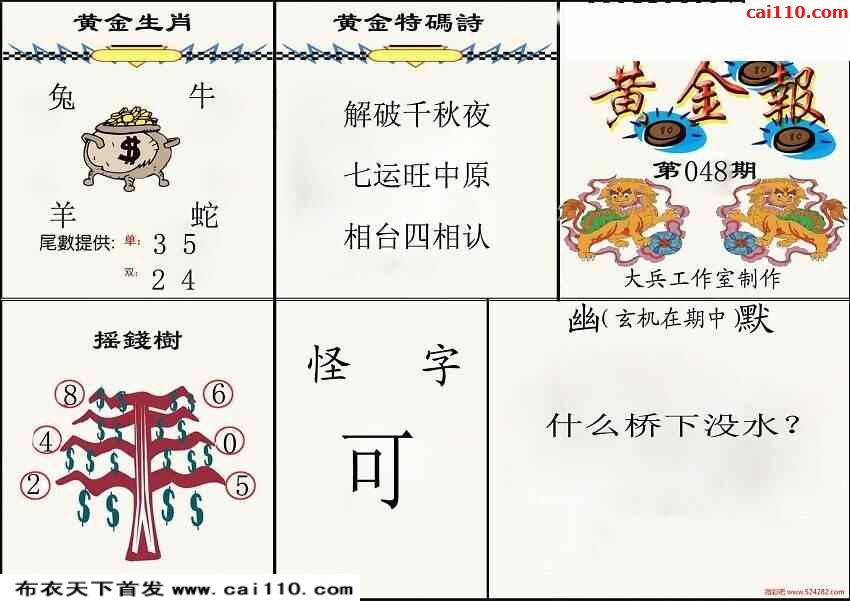 cai110.com
黃金生肖
兔 牛
$
羊 蛇
尾數提供: 单: 3 5
双: 2 4
黃金特碼詩
解破千秋夜
七运旺中原
相台四相认
黃金報
第048期
大兵工作室制作
摇錢樹
8 6
4 0
2 5
怪 字
可
幽(玄机在期中)默
什么桥下没水?
布衣天下首发 www.cai110.com
www.524282.com